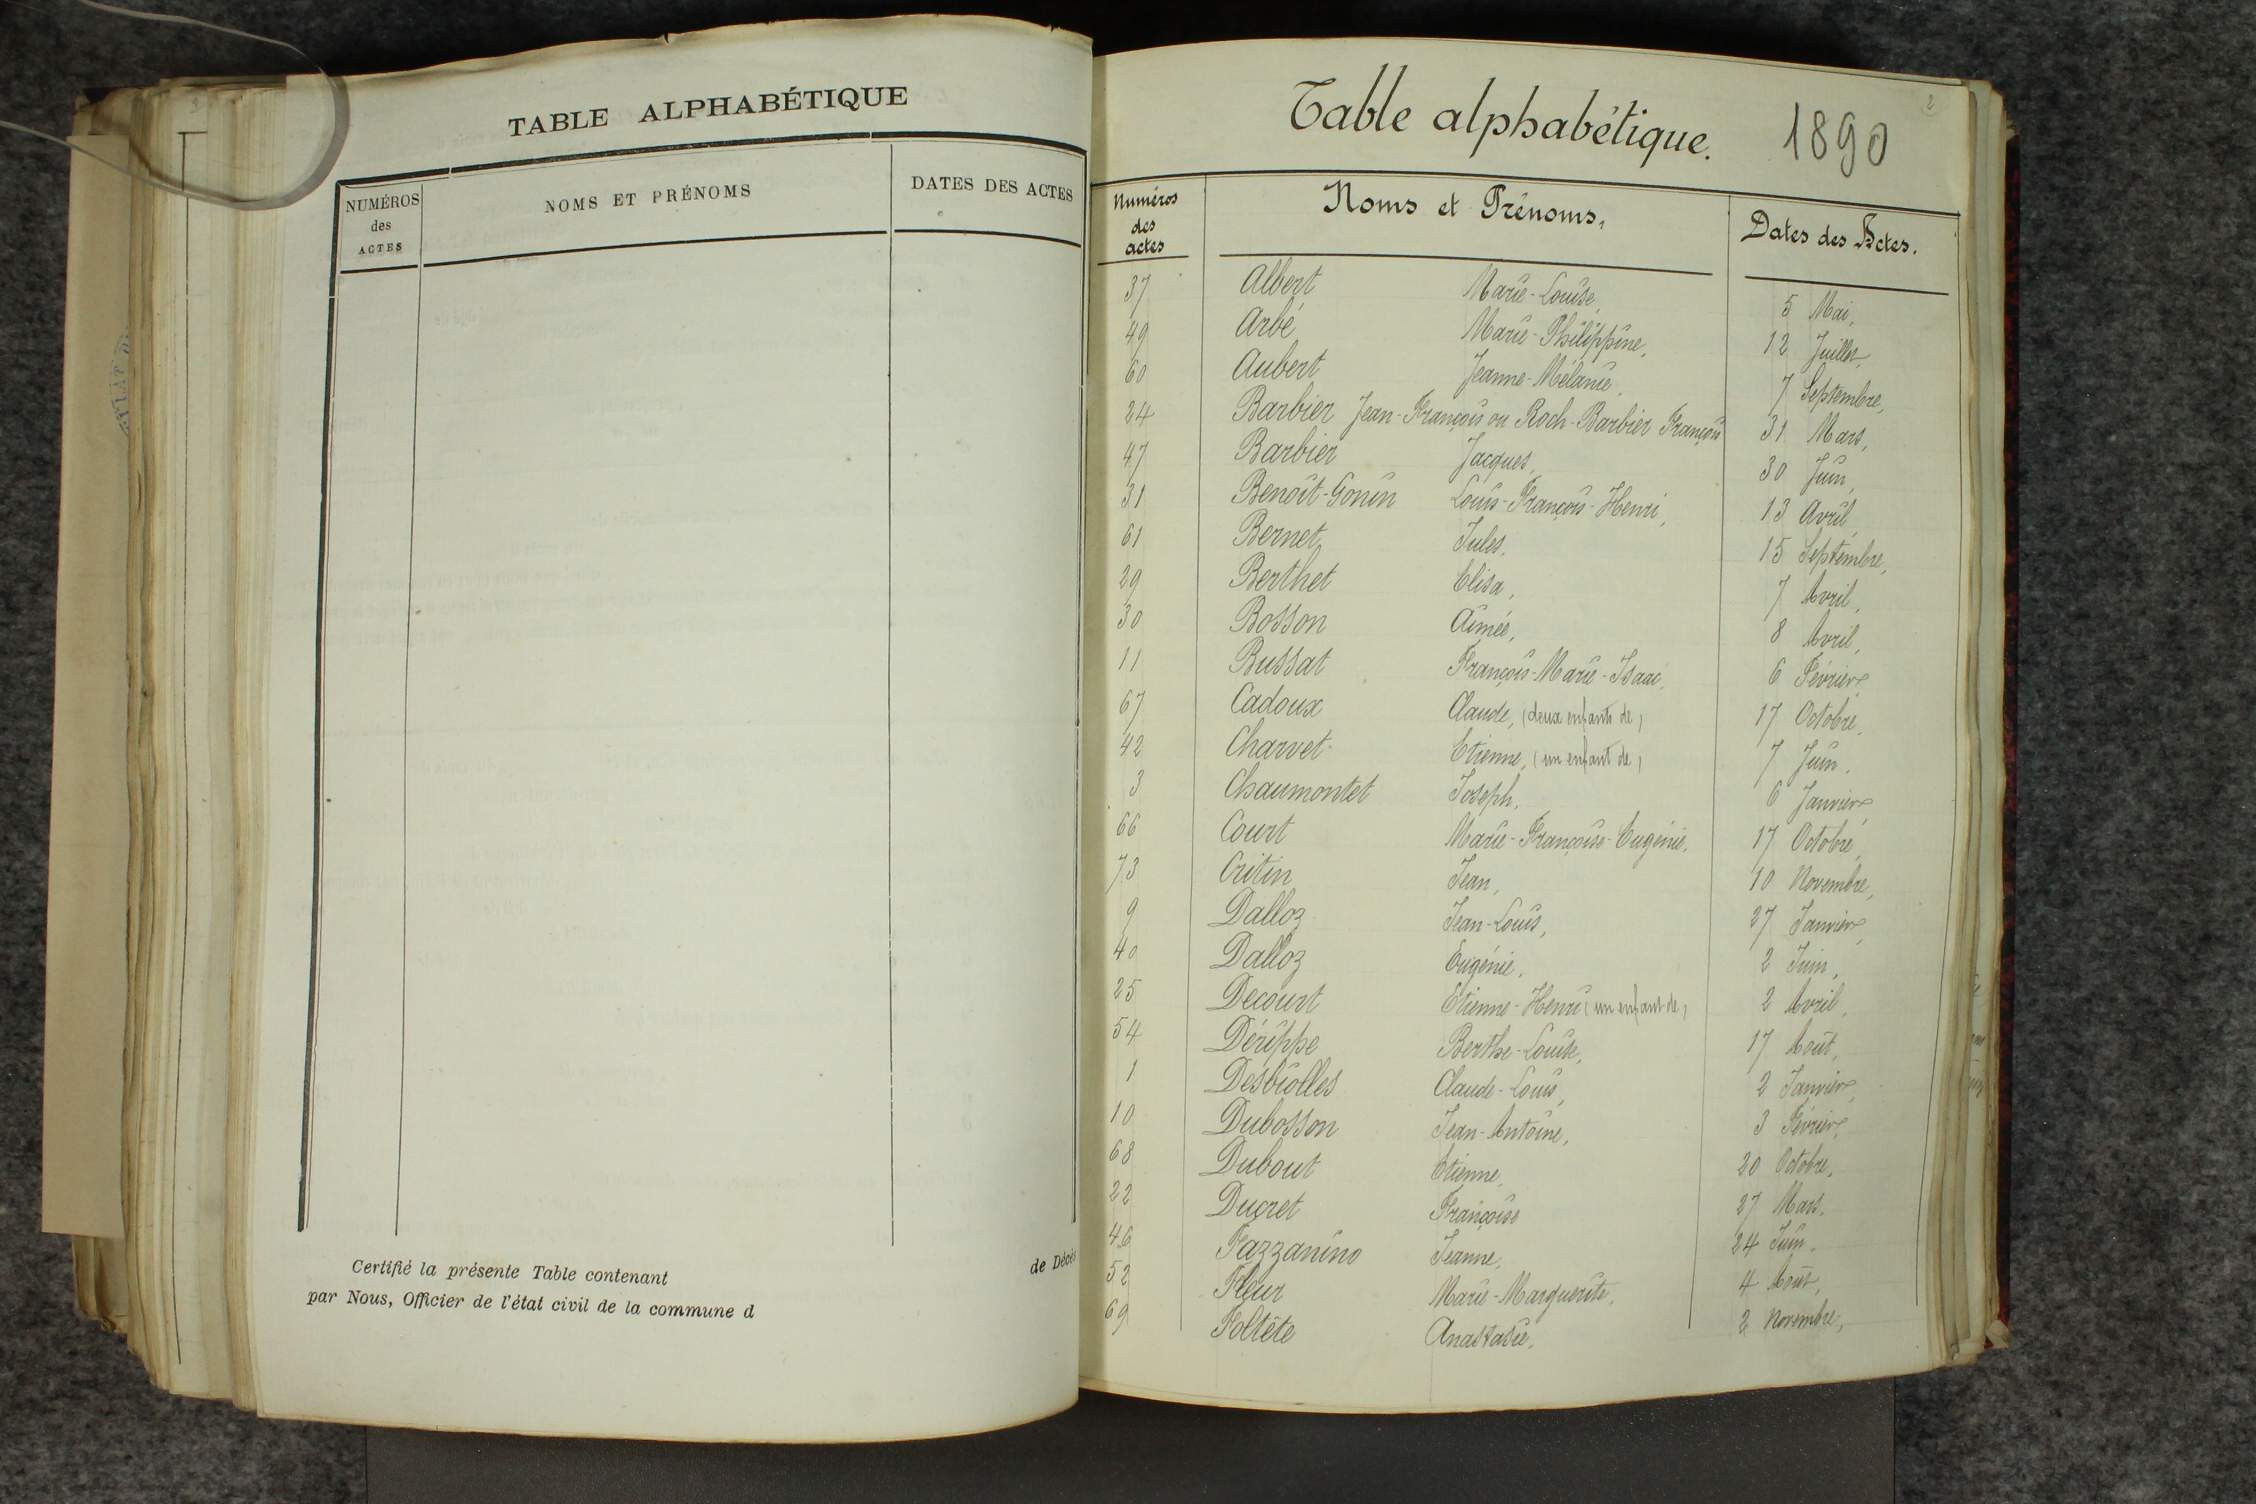 TABLE ALPHABÉTIQUE
NUMÉROS des ACTES NOMS ET PRÉNOMS DATES DES ACTES
Certifié la présente Table contenant de Décès
par Nous, Officier de l'état civil de la commune d
Table alphabétique. 1890
2
Numéros des actes Noms et Prénoms, Dates des Actes.
37 Albert Marie-Louise, 5 Mai,
49 Arbé Marie-Philippine, 12 Juillet,
60 Aubert Jeanne-Mélanie, 7 Septembre,
24 Barbier Jean-François ou Roch-Barbier François 31 Mars,
47 Barbier Jacques, 30 Juin,
31 Benoît-Gonin Louis-François-Henri, 13 Avril
61 Bernet Jules, 15 Septembre,
29 Berthet Elisa, 7 Avril,
30 Bosson Aimée, 8 Avril,
11 Bussat François-Marie-Isaac, 6 Février,
67 Cadoux Claude, (deux enfants de) 17 Octobre,
42 Charvet Etienne, (un enfant de) 7 Juin.
3 Chaumontet Joseph, 6 Janvier,
66 Court Marie-Françoise-Eugénie, 17 Octobre,
73 Critin Jean, 10 Novembre,
9 Dalloz Jean-Louis, 27 Janvier,
40 Dalloz Eugénie, 2 Juin,
25 Decourt Etienne-Henri (un enfant de) 2 Avril,
54 Dérippe Berthe-Louise, 17 Août,
1 Desbiolles Claude-Louis, 2 Janvier,
10 Dubosson Jean-Antoine, 3 Février,
68 Dubout Etienne, 20 Octobre,
22 Ducret Françoise 27 Mars.
46 Fazzanino Jeanne, 24 Juin.
52 Fleur Marie-Marguerite, 4 Août,
69 Foltête Anastasie, 2 Novembre,